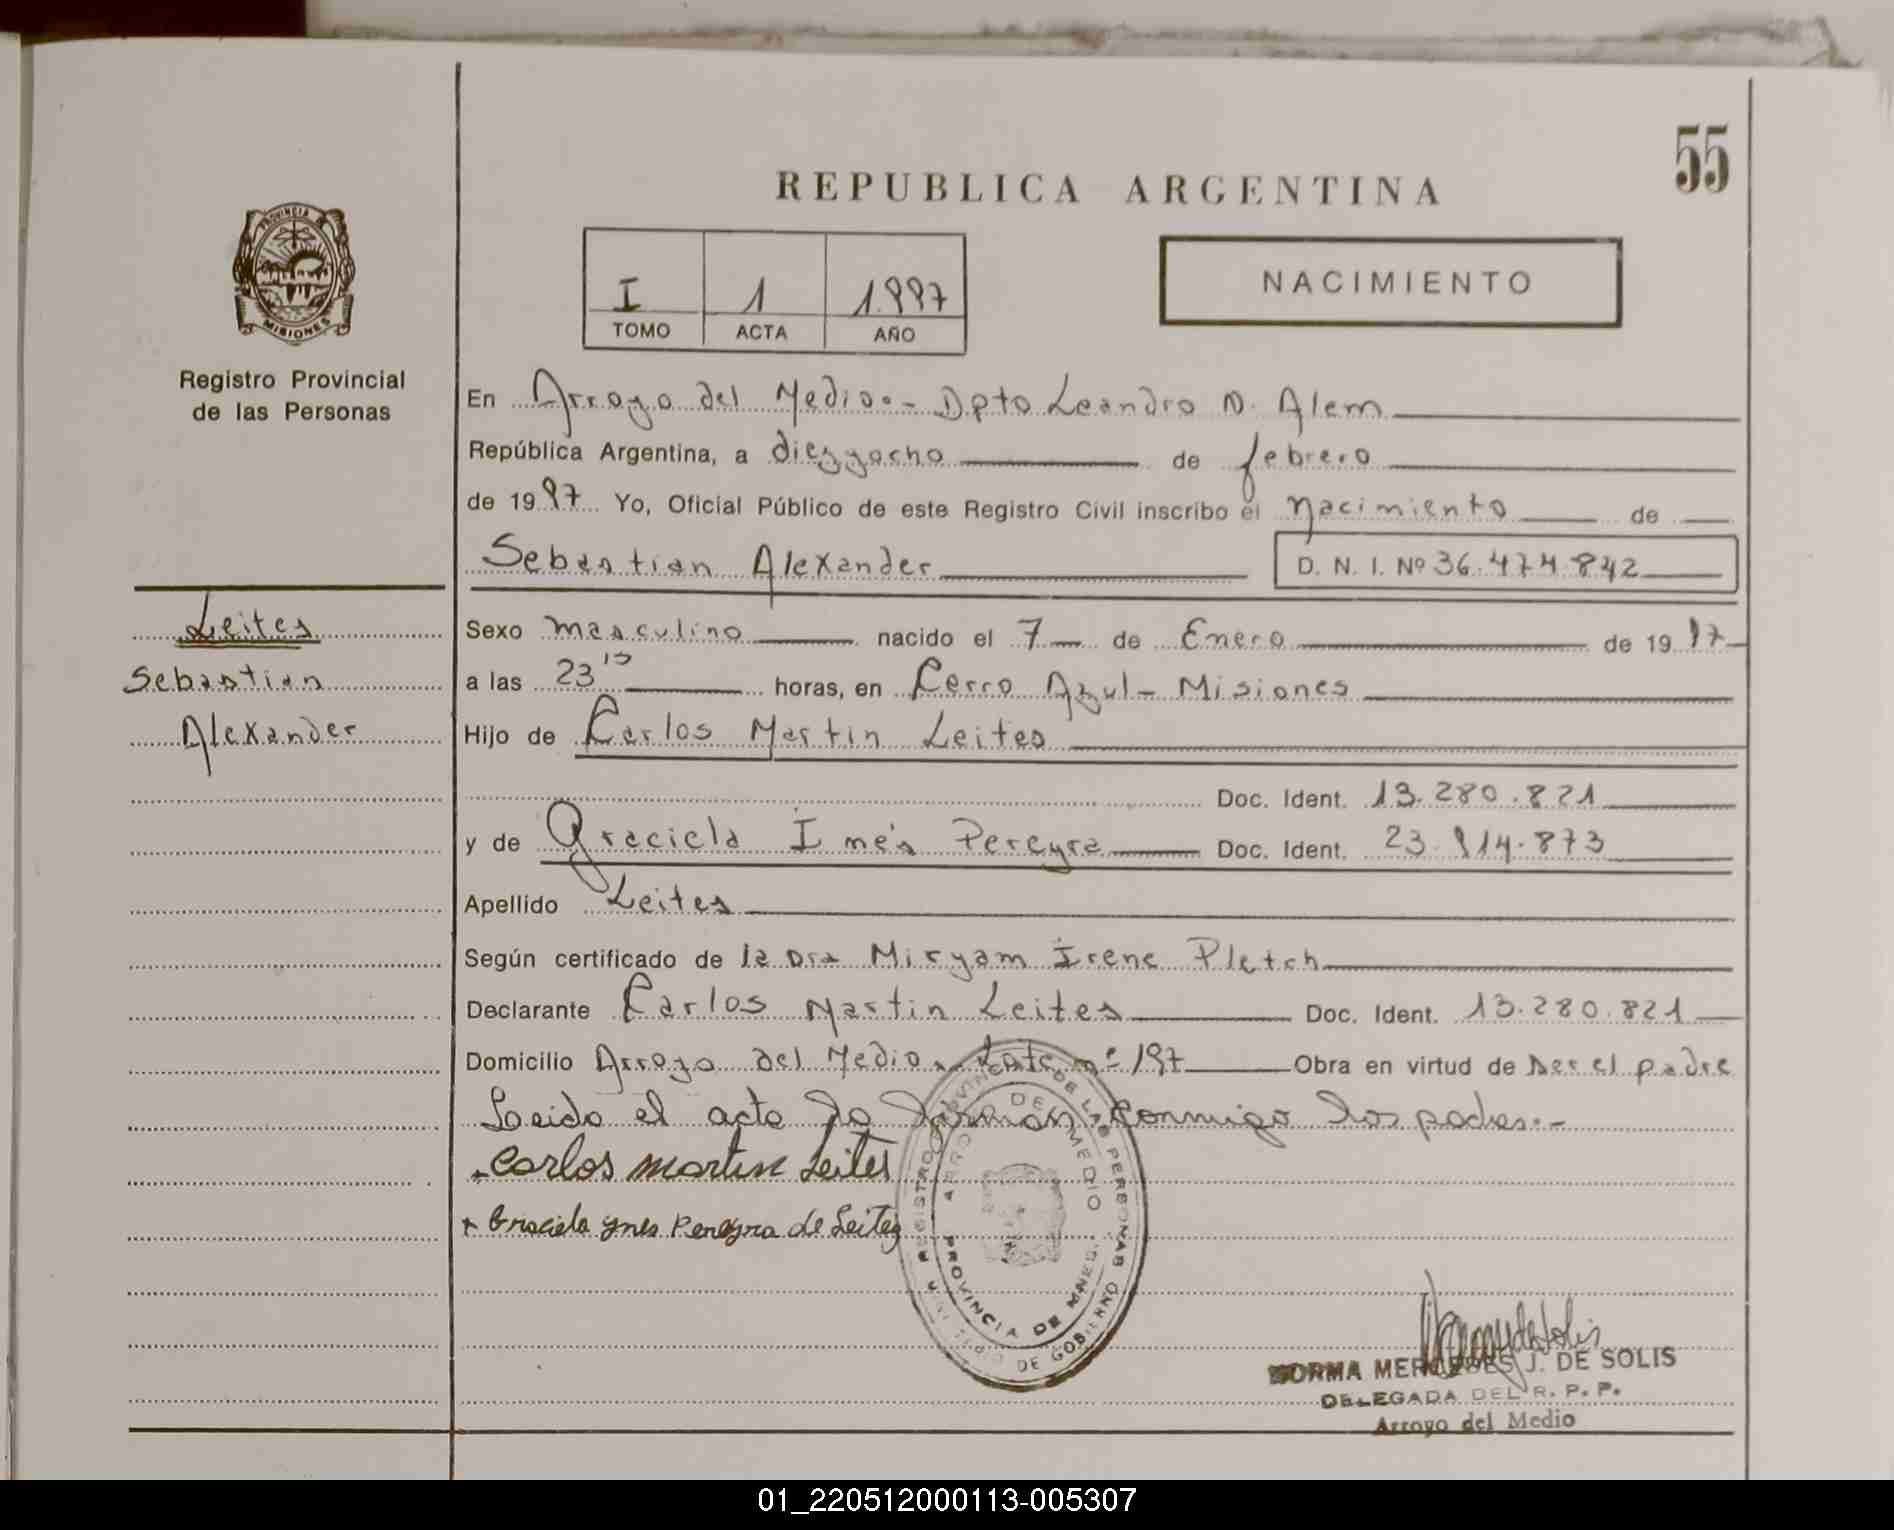 55
REPUBLICA ARGENTINA
PROVINCIA DE
MISIONES
Registro Provincial
de las Personas
I 1 1.997
TOMO ACTA AÑO
NACIMIENTO
En Arroyo del Medio.- Dpto Leandro N. Alem
República Argentina, a diezyocho de febrero
de 1997 Yo, Oficial Público de este Registro Civil inscribo el nacimiento de
Sebastian Alexander D. N. I. Nº 36.474.842
Leites
Sebastian
Alexander
Sexo masculino nacido el 7 de Enero de 1997
a las 23 15 horas, en Cerro Azul - Misiones
Hijo de Carlos Martin Leites
Doc. Ident. 13.280.821
y de Graciela Inés Pereyra Doc. Ident. 23.914.873
Apellido Leites
Según certificado de la Dra Miryam Irene Pletch
Declarante Carlos Martin Leites Doc. Ident. 13.280.821
Domicilio Arroyo del Medio - Lote nº 197 Obra en virtud de ser el padre
Leida el acta la firman conmigo los padres.-
Carlos martin Leites
Graciela ynes Pereyra de Leites
REGISTRO PROVINCIAL DE LAS PERSONAS
DE GOBIERNO
ARROYO DEL MEDIO
PROVINCIA DE MNES.
NORMA MERCEDES J. DE SOLIS
DELEGADA DEL R. P. P.
Arroyo del Medio
01_220512000113-005307